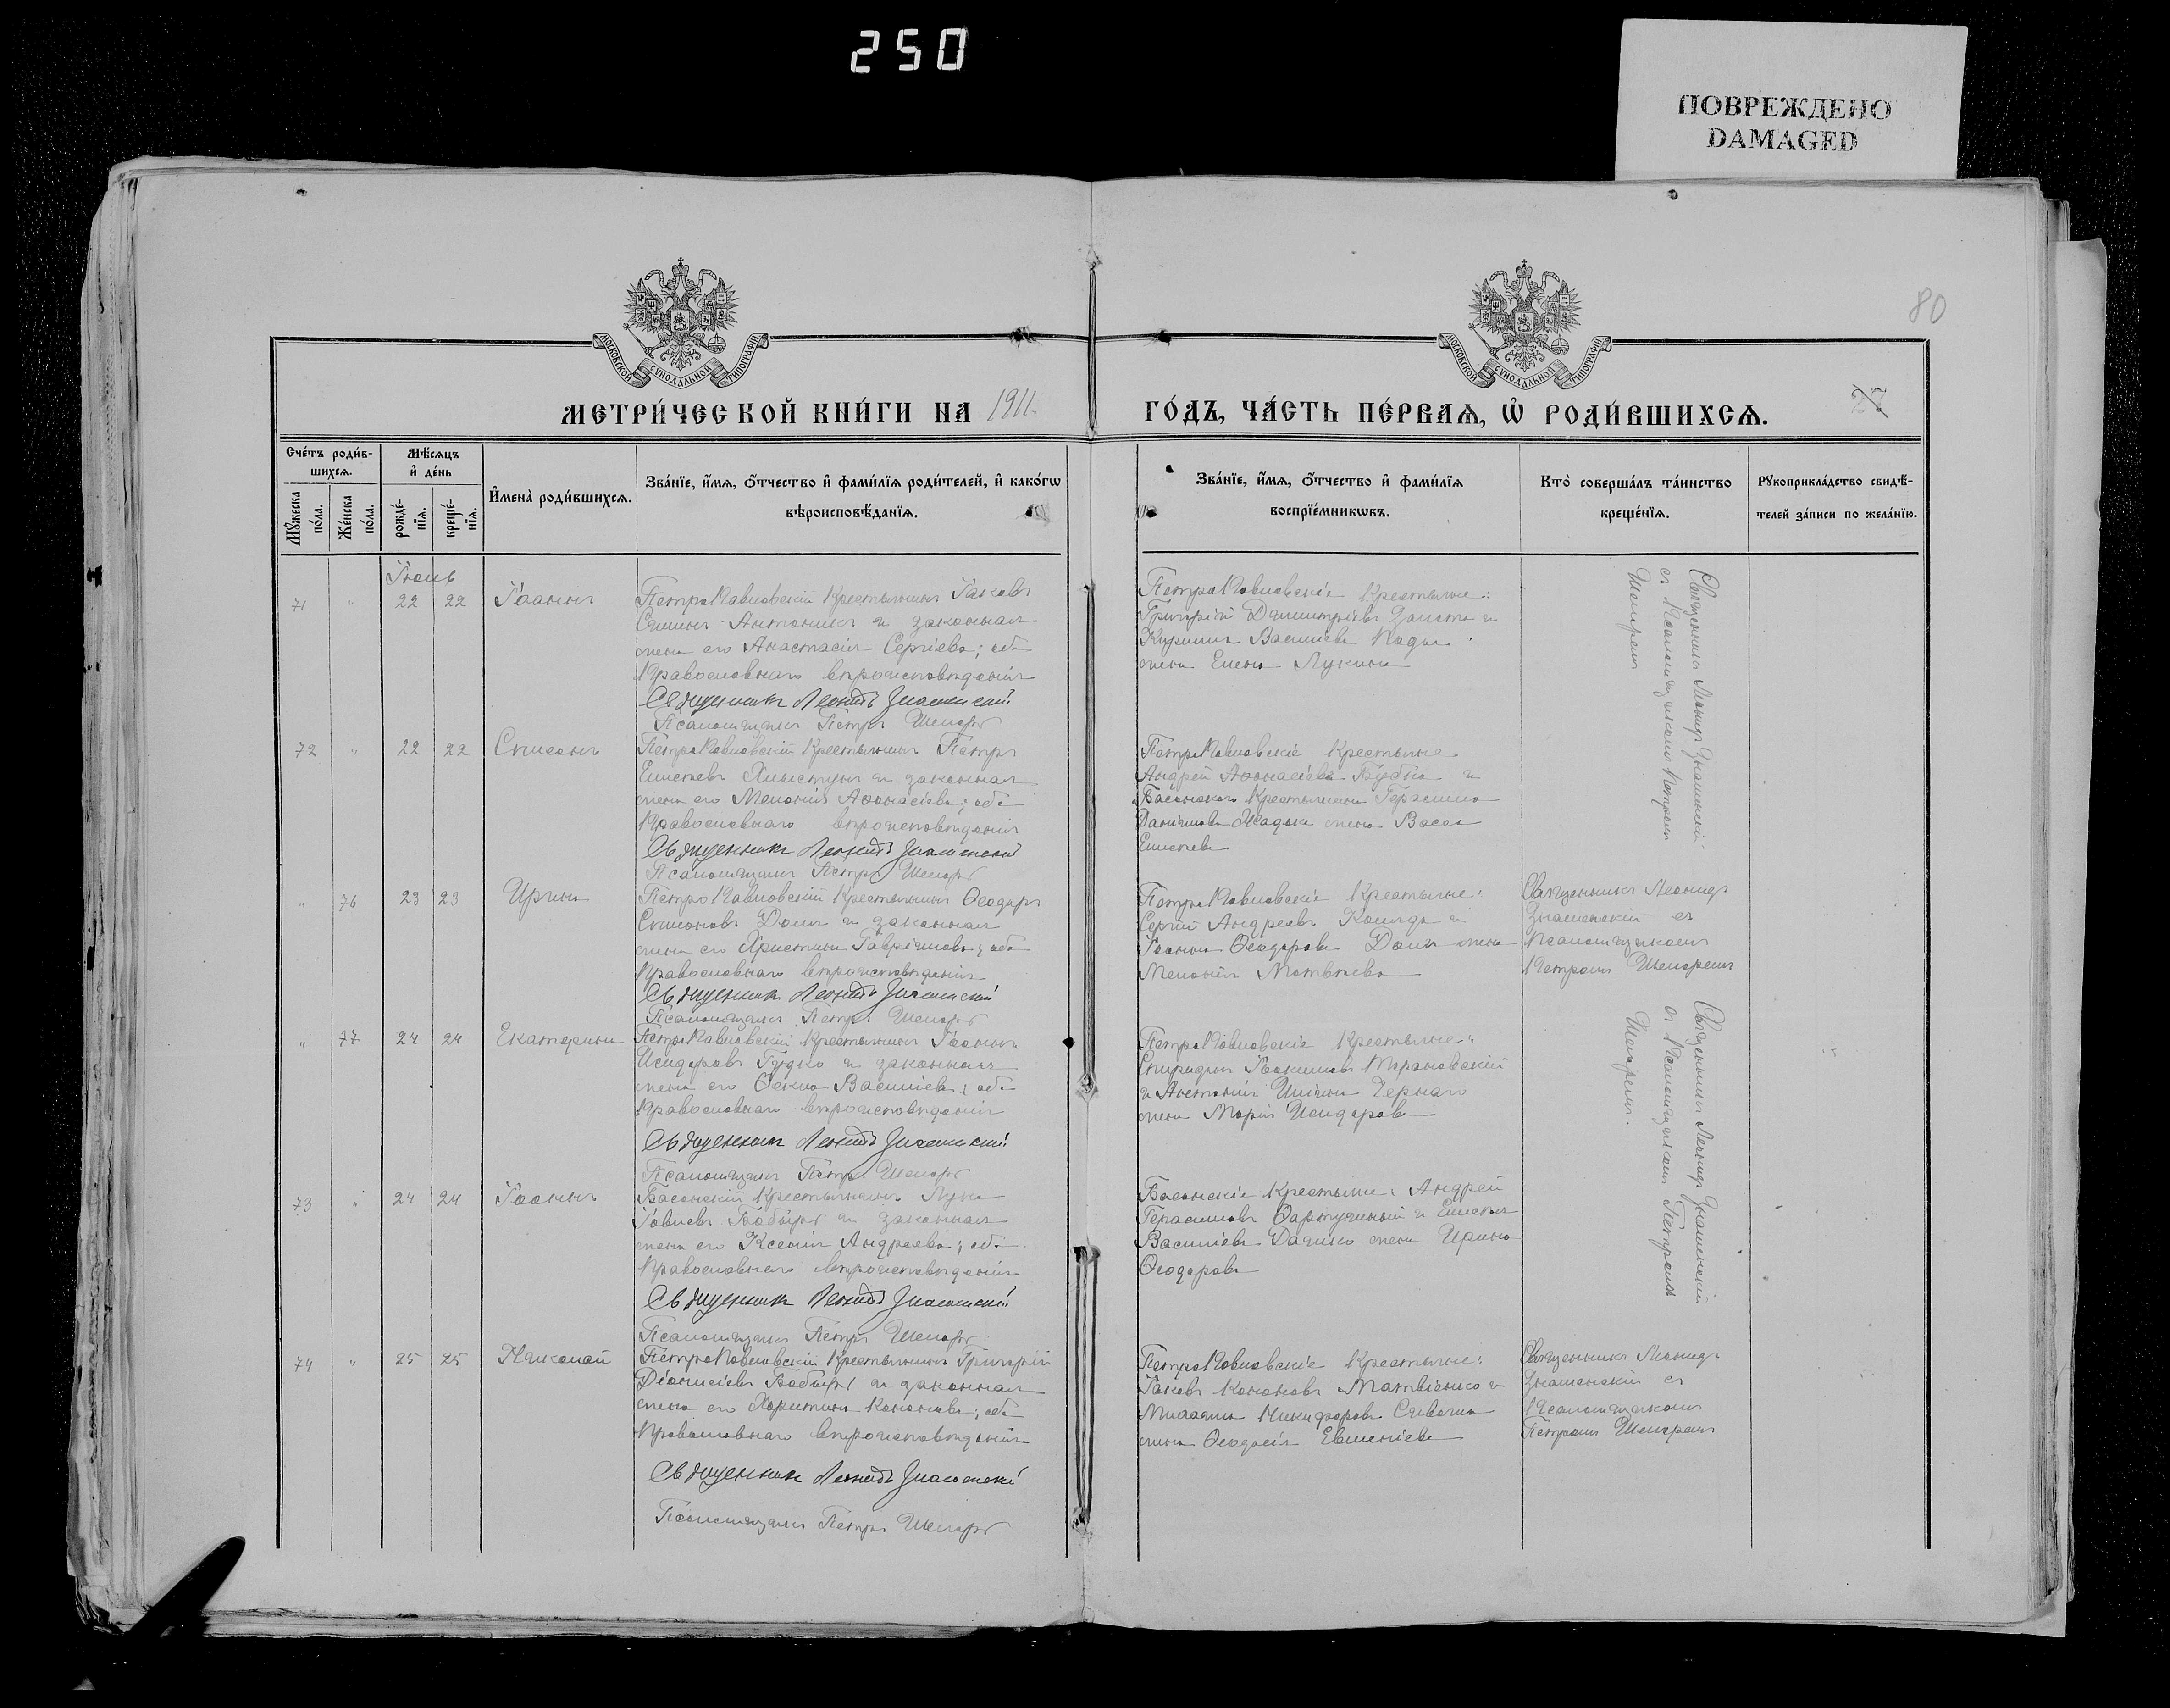 250
ПОВРЕЖДЕНО
DAMAGED
80
МОСКОВСКОЙ СѴНОДАЛЬНОЙ ТИПОГРАФІИ
МОСКОВСКОЙ СѴНОДАЛЬНОЙ ТИПОГРАФІИ
МЕТРИ́ЧЕСКОЙ КНИ́ГИ НА 1911.
ГО́ДЪ, ЧА́СТЬ ПЕ́РВАѦ, Ѡ҆ РОДИ́ВШИХСѦ.
27
Сче́тъ роди́в-
шихсѧ.
Мꙋ́жеска
по́ла.
Же́нска
по́ла.
Мѣ́сѧцъ
и҆ де́нь
рожде́-
нїѧ.
креще́-
нїѧ.
И҆мена̀ роди́вшихсѧ.
Зва́нїе, и҆́мѧ, ѻ҆́тчество и҆ фами́лїѧ роди́телей, и҆ како́гѡ
вѣроисповѣ́данїѧ.
Зва́нїе, и҆́мѧ, ѻ҆́тчество и҆ фами́лїѧ
воспрїе́мникѡвъ.
Кто̀ соверша́лъ та́инство
креще́нїѧ.
Рꙋкоприкла́дство свидѣ́-
телей за́писи по жела́нїю.
Іюнь
71 " 22 22 Іоаннъ
ПетроПавловскій Крестьянинъ Іаковъ
Антоникъ и законная
жена его Анастасія Сергіева; оба
Православнаго вѣроисповѣданія
Священникъ Леонидъ Знаменскій
Псаломщикъ Петръ
ПетроПавловскіе Крестьяне:
Григорій Димитріевъ и
Василіева
жена Елена Лукина
Священникъ Леонидъ Знаменскій
съ Псаломщикомъ Петромъ
72 " 22 22 Симеонъ
ПетроПавловскій Крестьянинъ Петръ
Елисѣевъ и законная
жена его Меланія Аѳанасіева; оба
Православнаго вѣроисповѣданія
Священникъ Леонидъ Знаменскій
Псаломщикъ Петръ
ПетроПавловскіе Крестьяне
Андрей Аѳанасіевъ и
Крестьянина Герасима
Даніилова жена Васса
Елисѣева
" 76 23 23 Ирина
ПетроПавловскій Крестьянинъ Ѳеодоръ
Симеоновъ и законная
жена его Христина Гавріилова; оба
Православнаго вѣроисповѣданія
Священникъ Леонидъ Знаменскій
Псаломщикъ Петръ
ПетроПавловскіе Крестьяне:
Сергій Андреевъ и
Іоанна Ѳеодорова жена
Меланія Матвѣева
Священникъ Леонидъ
Знаменскій съ
Псаломщикомъ
Петромъ
" 77 24 24 Екатерина
ПетроПавловскій Крестьянинъ Іоаннъ
Исидоровъ Гудко и законная
жена его Ѳекла Василіева; оба
Православнаго вѣроисповѣданія
Священникъ Леонидъ Знаменскій
Псаломщикъ Петръ
ПетроПавловскіе Крестьяне:
Спиридонъ
и Чернаго
жена Марія Исидорова
Священникъ Леонидъ Знаменскій
съ Псаломщикомъ Петромъ
73 " 24 24 Іоаннъ
Крестьянинъ Лука
Бобырь и законная
жена его Ксенія Андреева; оба
Православнаго вѣроисповѣданія
Священникъ Леонидъ Знаменскій
Псаломщикъ Петръ
Крестьяне: Андрей
Герасимовъ и
Василіева жена Ирина
Ѳеодорова
74 " 25 25 Николай
ПетроПавловскій Крестьянинъ Григорій
Діонисіевъ Бобырь и законная
жена его Харитина Кононова; оба
Православнаго вѣроисповѣданія
Священникъ Леонидъ Знаменскій
Псаломщикъ Петръ
ПетроПавловскіе Крестьяне:
Іаковъ Кононовъ Матвіенко и
Никифорова
жена Ѳеодосія Евменіева
Священникъ Леонидъ
Знаменскій съ
Псаломщикомъ
Петромъ